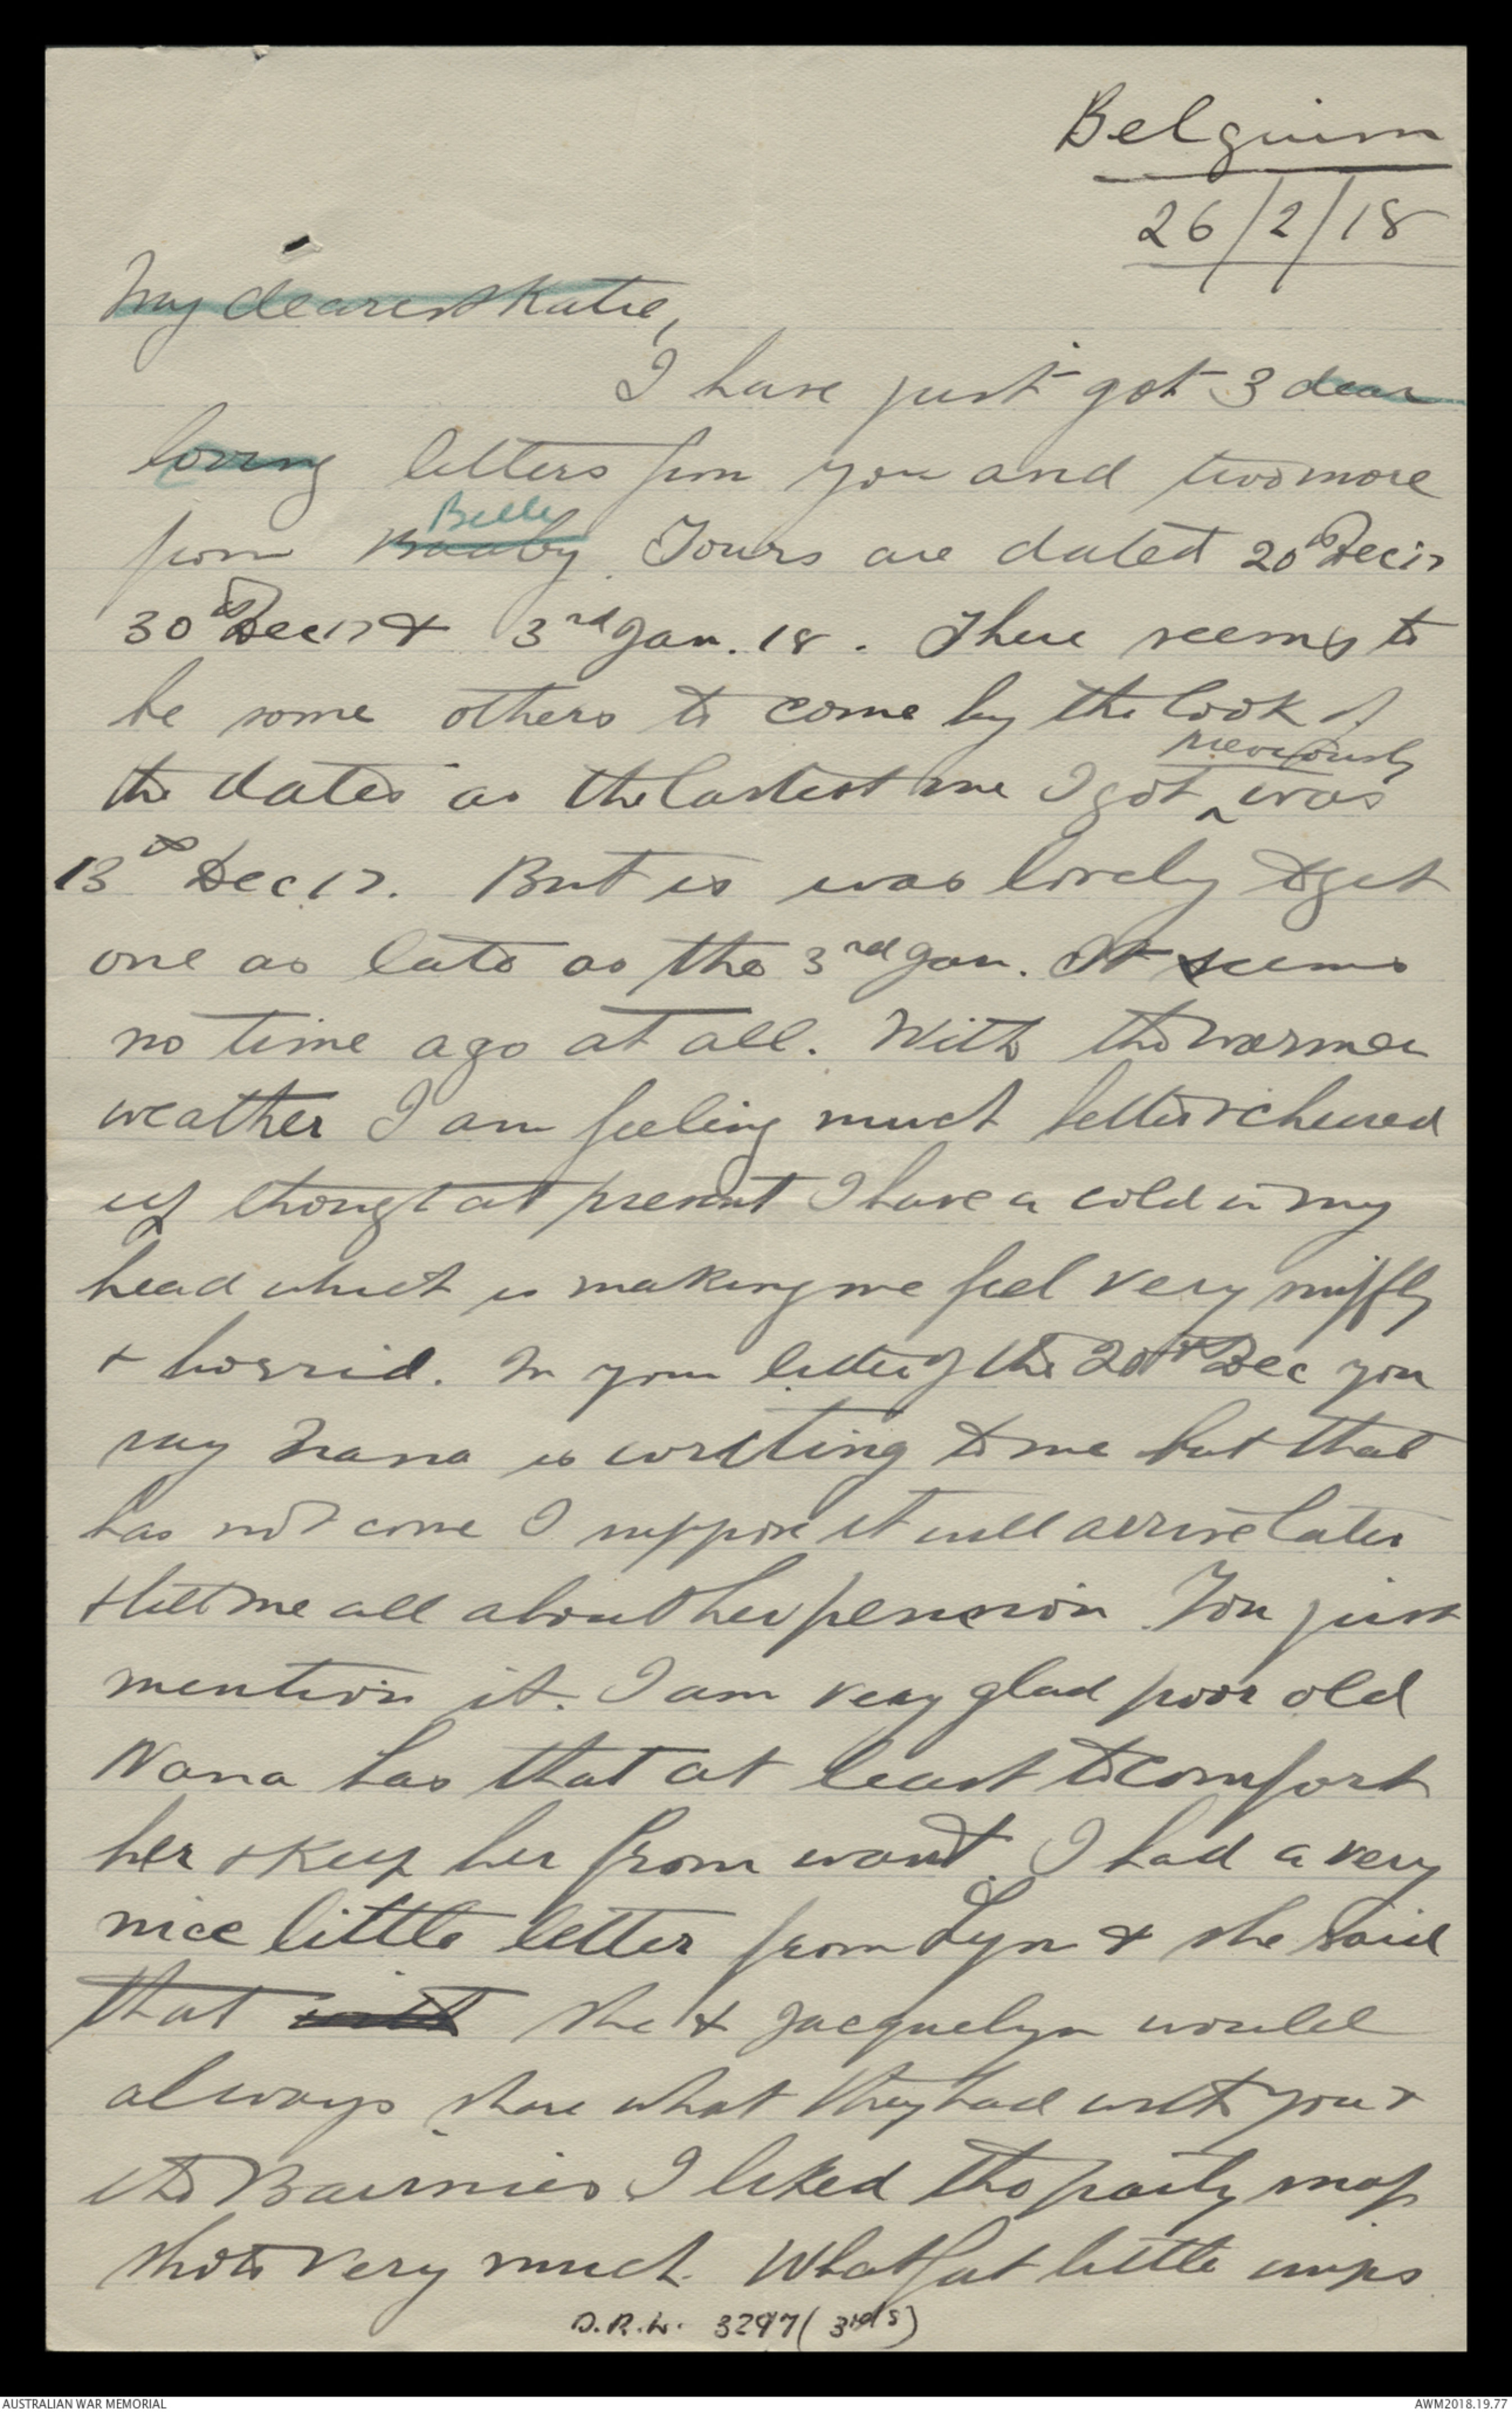 Belguim
26/2/18
My dearest Katie,
I have just got 3 dear
loving letters from you and two more
Belle
from Baaby. Yours are dated 20th Dec 17
30th Dec 17 & 3rd Jan. 18. There seems to
be some others to come by the look of
previously
the dates as the lastest one I got ^ was
13th Dec 17. But is was lovely to get
one as late as the 3rd Jan. It seems
no time ago at all. With the warmer
weather I am feeling much better & cheered
up though at present I have a cold in my
head which is making me feel very sniffly
& horrid. In your letter of the 20th Dec you
say Nana is writing to me but that
has not come I suppose it will arrive later
& tell me all about her pension. You just
mention it. I am very glad poor old
Nana has that at least to comfort
her & keep her from want. I had a very
nice little letter from Lyn & she said
that with she & Jacquelyn would
always share what they had with you &
the Bairnies I liked the party snap
shots very much. What fat little imps
D.R.L. 3297 (3rds)
AUSTRALIAN WAR MEMORIAL
AWM2018.19.77